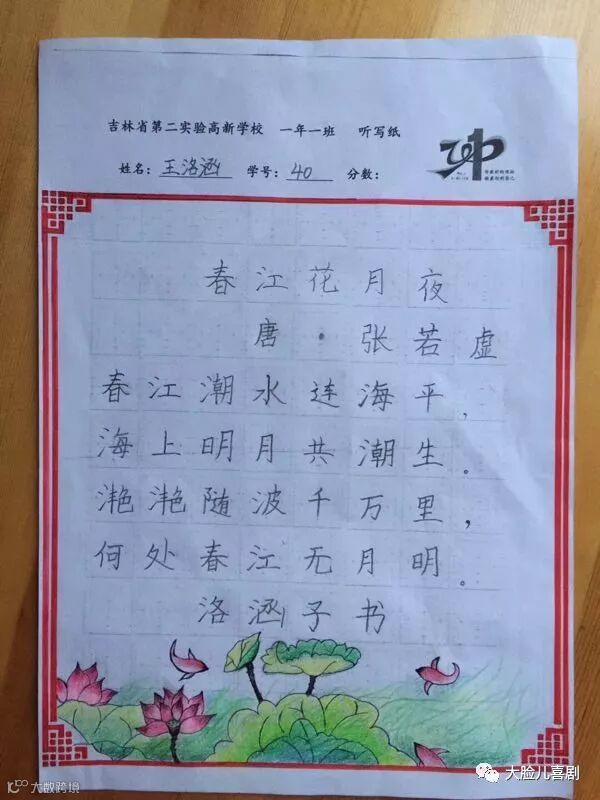 吉林省第二实验高新学校 一年一班 听写纸
姓名：王洛涵 学号：40 分数：
春江花月夜
唐·张若虚
春江潮水连海平，
海上明月共潮生。
滟滟随波千万里，
何处春江无月明。
洛涵子书
大数跨境
大脸儿喜剧